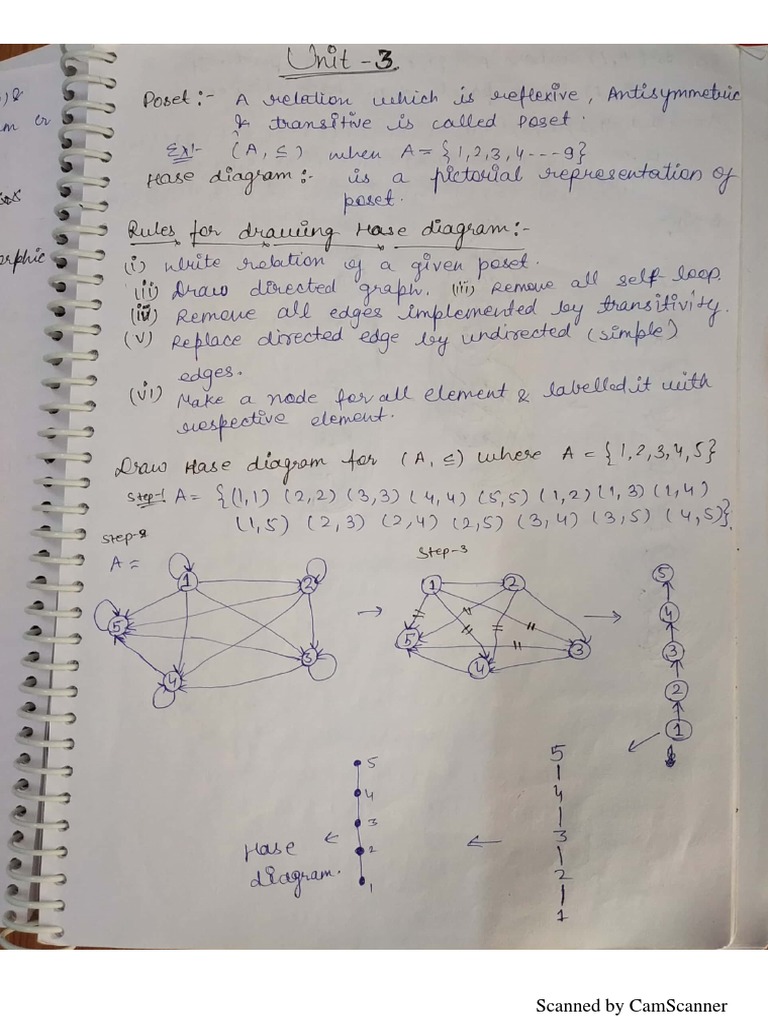 Unit - 3
Poset :- A relation which is reflexive, Antisymmetric
& transitive is called Poset.
Ex:- (A, ≤) when A = {1,2,3,4---9}
Hase diagram :- is a pictorial representation of
poset.
Rules for drawing Hase diagram :-
(i) Write relation of a given poset.
(ii) Draw directed graph. (iii) Remove all self-loop.
(iv) Remove all edges implemented by transitivity.
(v) Replace directed edge by undirected (simple)
edges.
(vi) Make a node for all element & labelled it with
respective element.
Draw Hase diagram for (A, ≤) where A = {1,2,3,4,5}
Step-1 A = {(1,1) (2,2) (3,3) (4,4) (5,5) (1,2) (1,3) (1,4)
(1,5) (2,3) (2,4) (2,5) (3,4) (3,5) (4,5)}.
Step-2
A =
1
2
5
3
4
Step-3
1
2
5
4
3
5
4
3
2
1
5
4
3
2
1
5
4
3
2
1
Hase
diagram.
) &
m or
orphic
Scanned by CamScanner